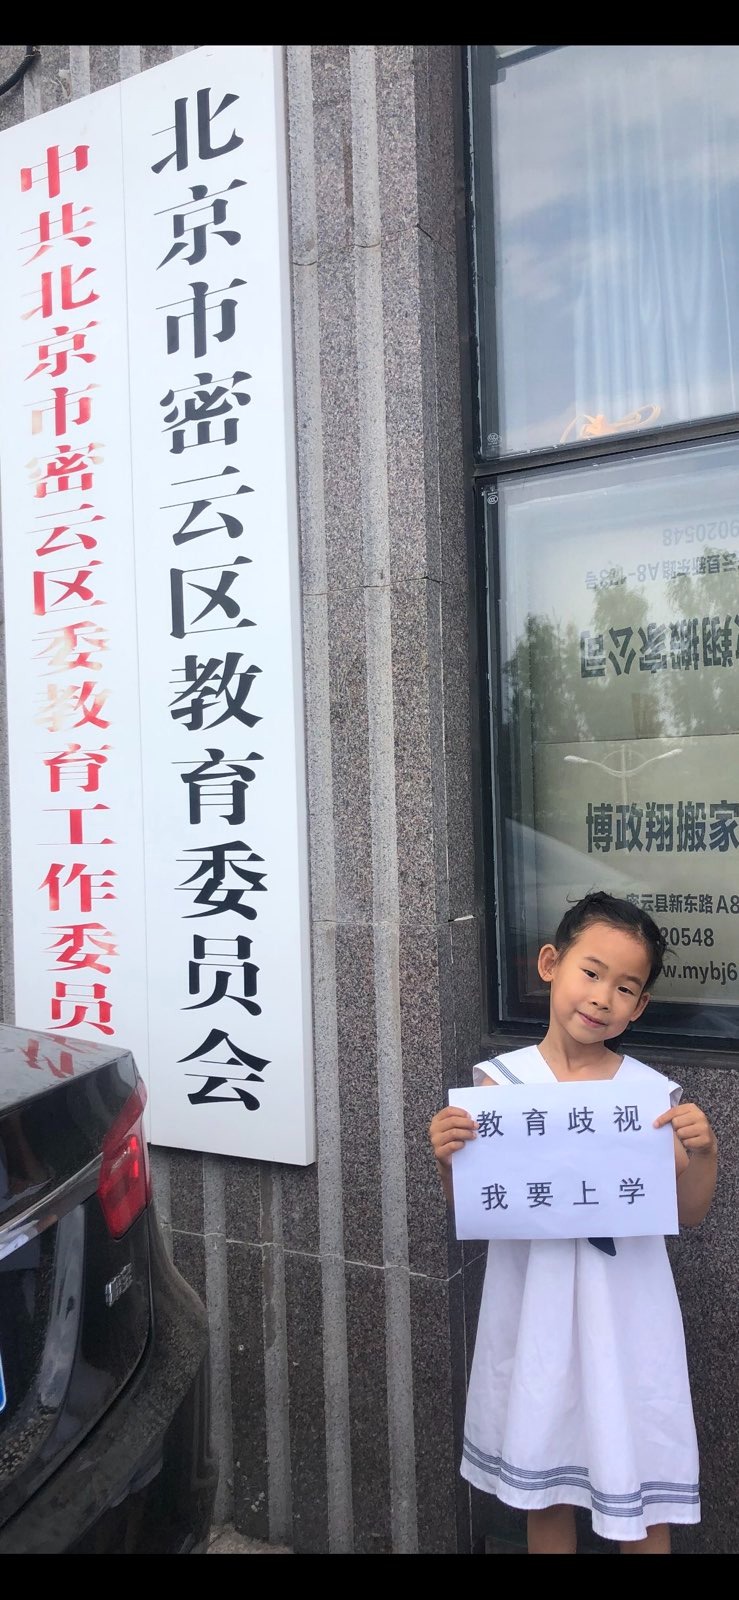 北京市密云区教育委员会
中共北京市密云区委教育工作委员
博政翔搬家
密云县新东路A8
20548
教育歧视
我要上学